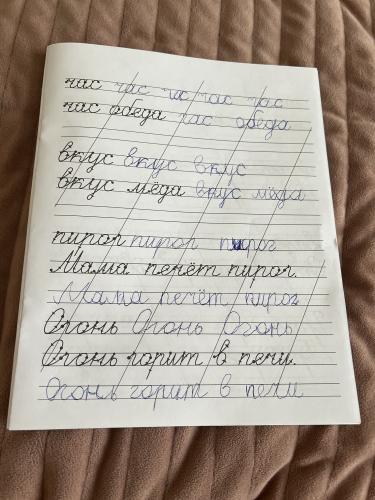 час час час час час
час обеда час обеда
вкус вкус вкус
вкус мёда вкус мёда
пирог пирог пирог
Мама печёт пирог.
Мама печёт пирог
Огонь Огонь Огонь
Огонь горит в печи.
Огонь горит в печи